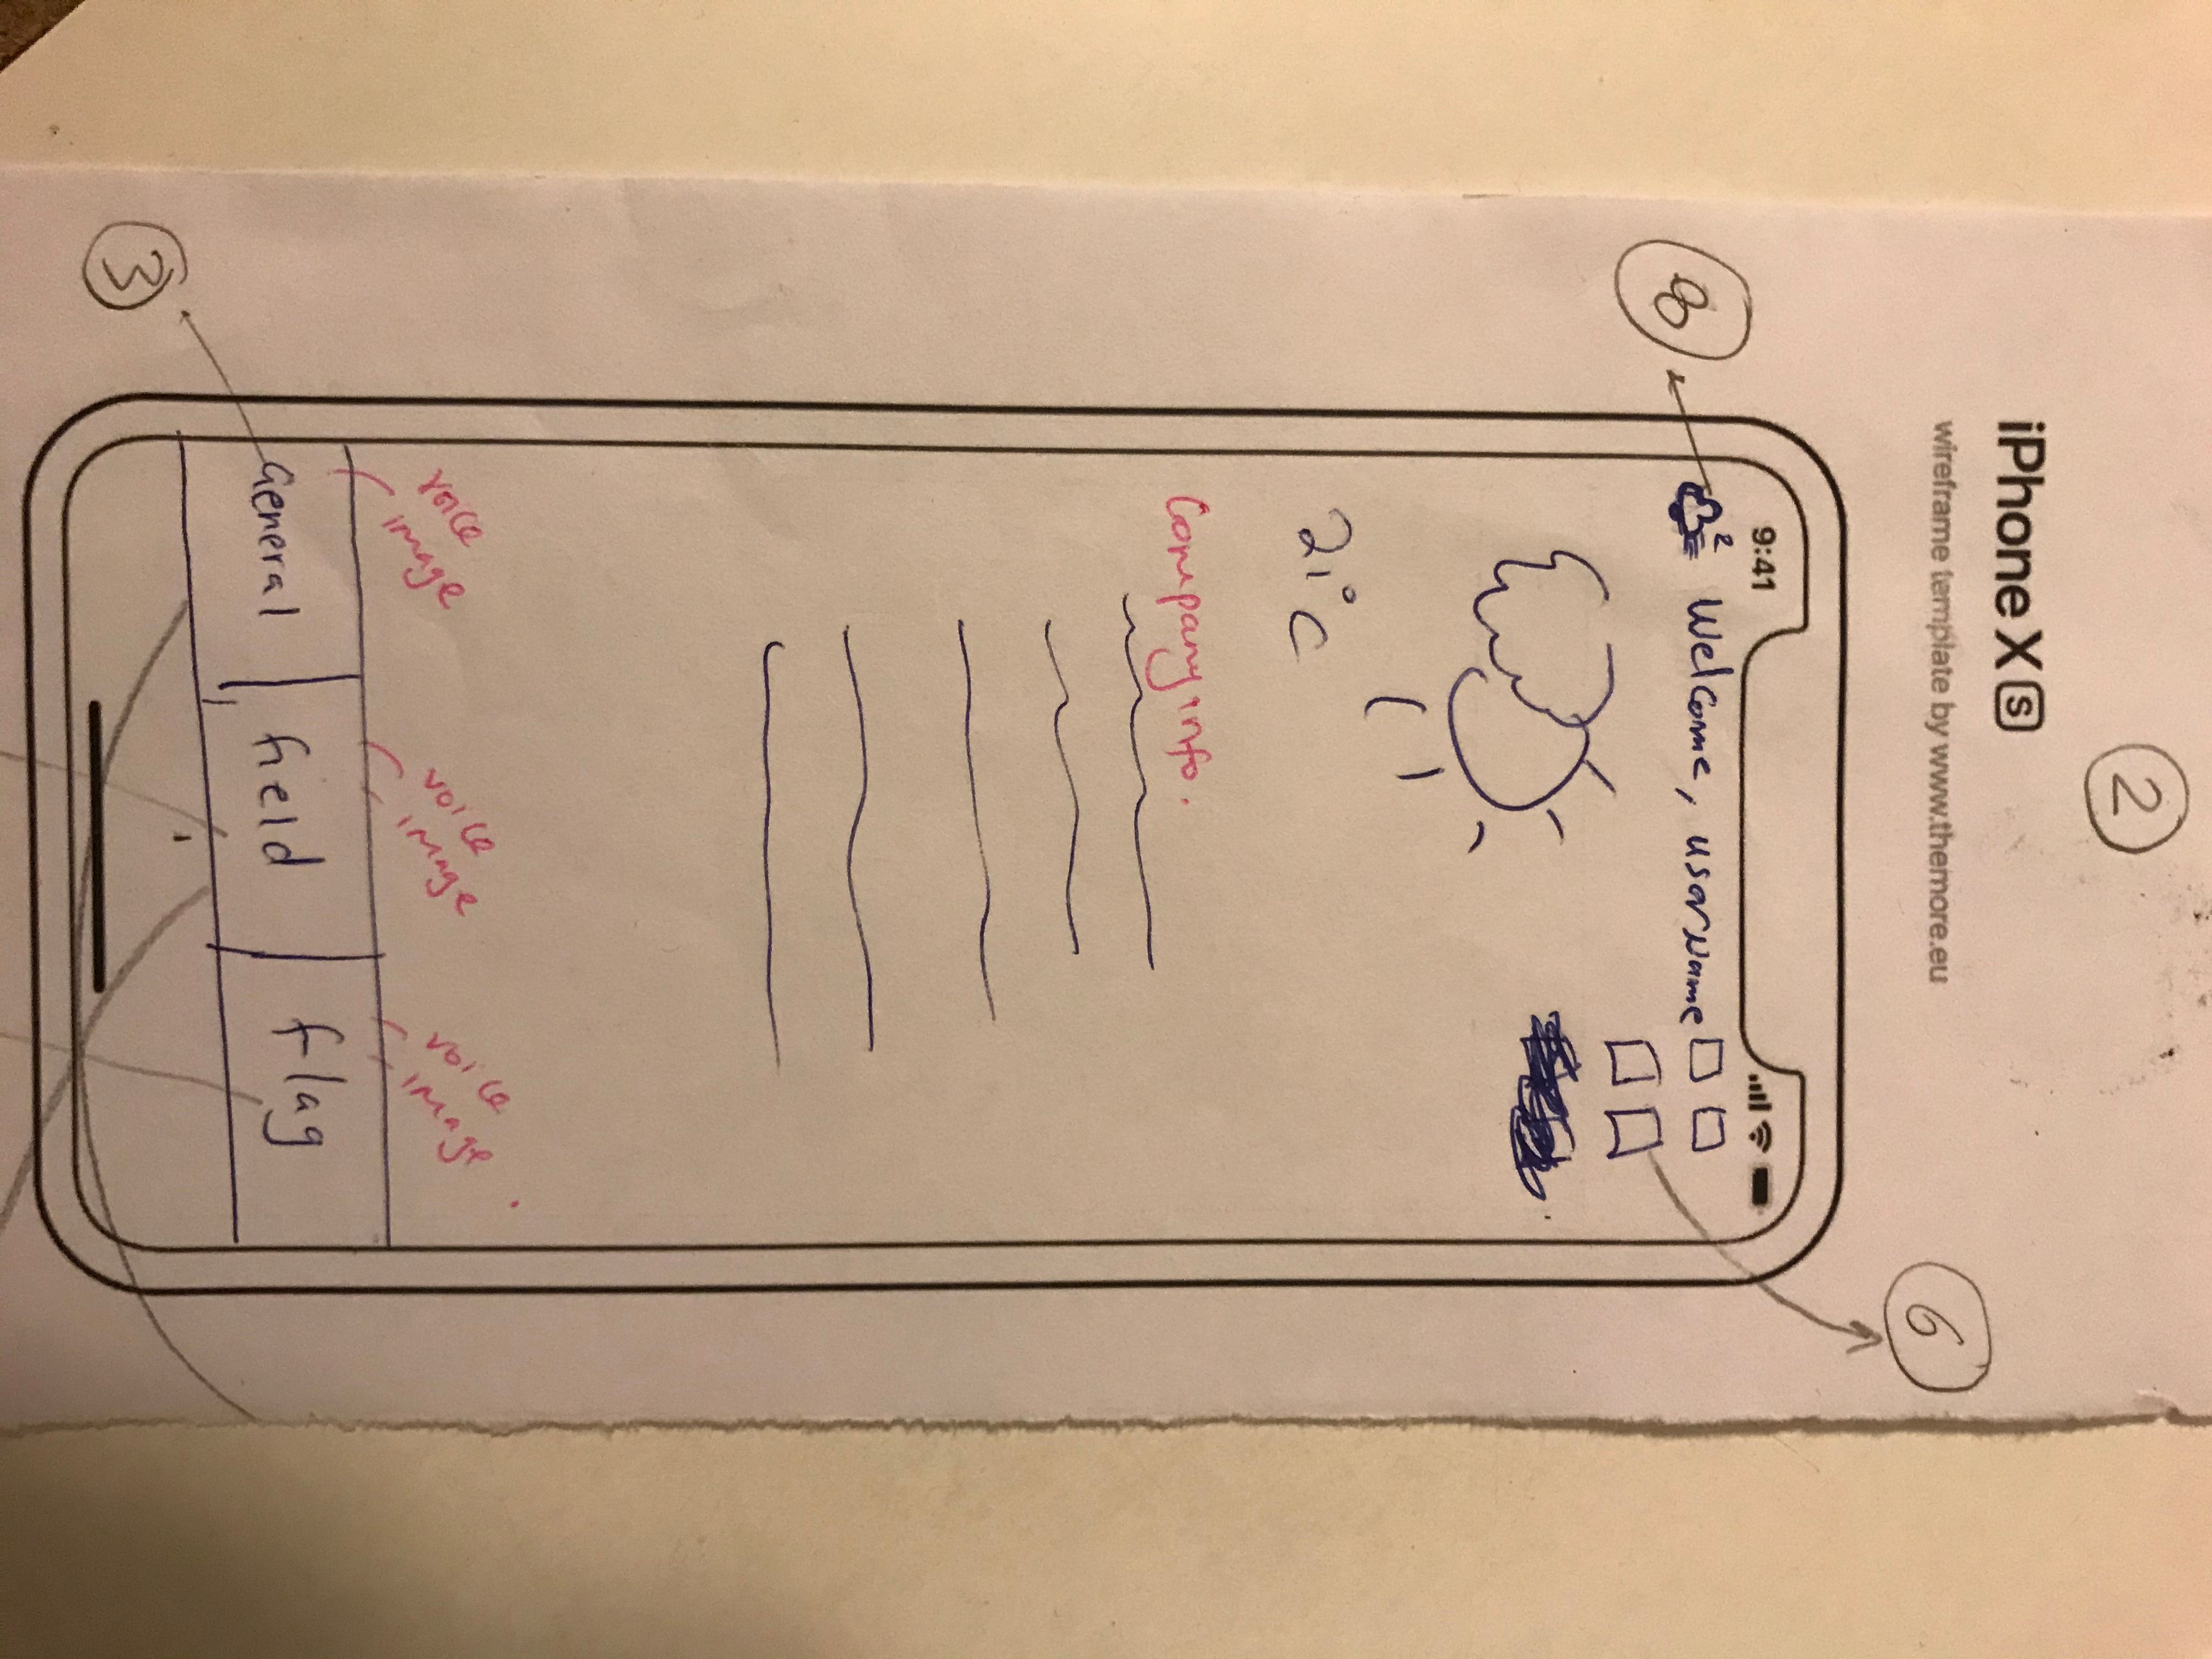 2
iPhone X S
wireframe template by www.themore.eu
6
9:41
8
2
Welcome, userName
21°C
Company info.
voice
image
voice
image
voice
image
General
field
flag
3